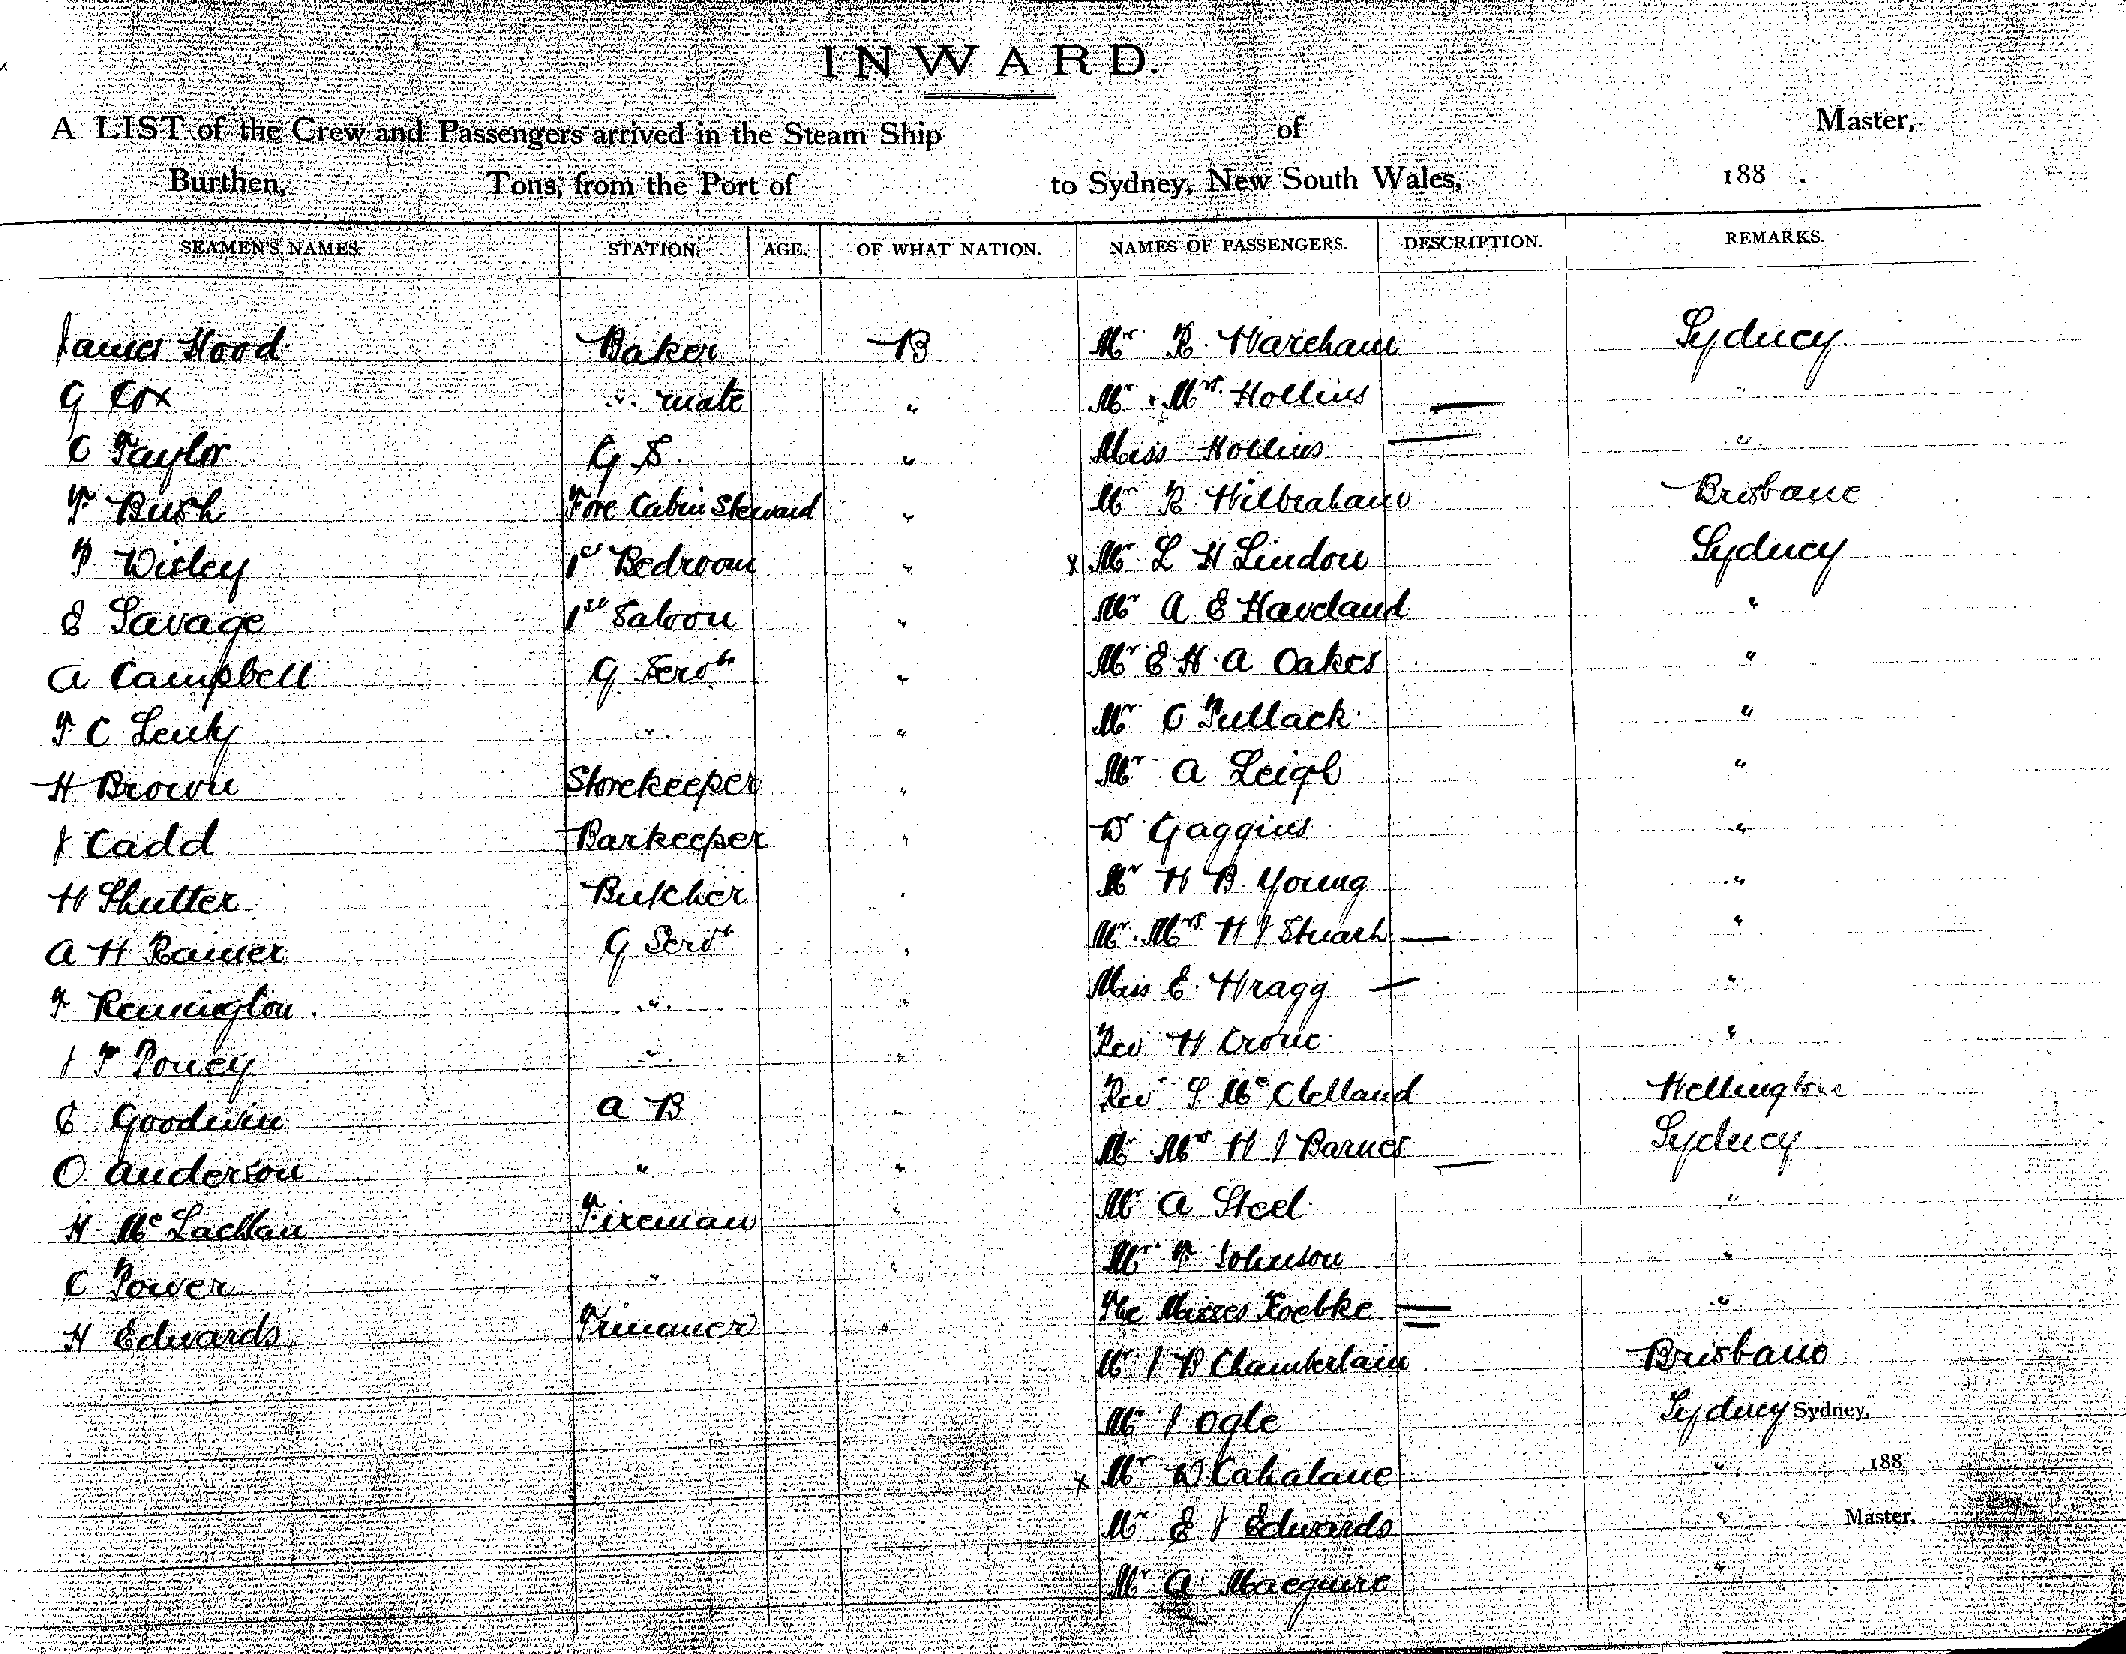 INWARD.
A LIST of the Crew and Passengers arrived in the Steam Ship of Master,
Burthen, Tons, from the Port of to Sydney, New South Wales, 188 .
SEAMEN'S NAMES. STATION. AGE. OF WHAT NATION. NAMES OF PASSENGERS. DESCRIPTION. REMARKS.
James Hood Baker B Mr R Wareham Sydney
G Cox " mate " Mr . Mrs Hollins — "
C Taylor G S. " Miss Hollins — "
F Bush Fore Cabin Steward " Mr R Wilbraham Brisbane
P Wisley 1st Bedroom " x Mr L H Lindon Sydney
E Savage 1st Saloon " Mr A E Haveland "
A Campbell G Servt " Mr E H A Oakes "
F C " " Mr C Tullack "
H Brown Storekeeper " Mr A Leigh "
J Cadd Barkeeper " D Gaggins "
H Shutter Butcher " Mr H B Young "
A H Rainer G Servt " Mr . Mrs H J Stuart — "
F Rennington . " " Miss E Wragg — "
J F Povey " " Rev H Crone "
C Goodwin A B " Rev S McClelland Wellington
O Anderson " " Mr Mrs H J Barnes — Sydney
H McLachlan Fireman " Mr A Steel "
C Power " " Mr F Johnson "
H Edwards Trimmer " The Misses Koebke = "
Mr J B Chamberlain Brisbane
Mr J Ogle Sydney Sydney,
x Mr D Cahalane " 188
Mr E J Edwards " Master.
Mr A Macguire "